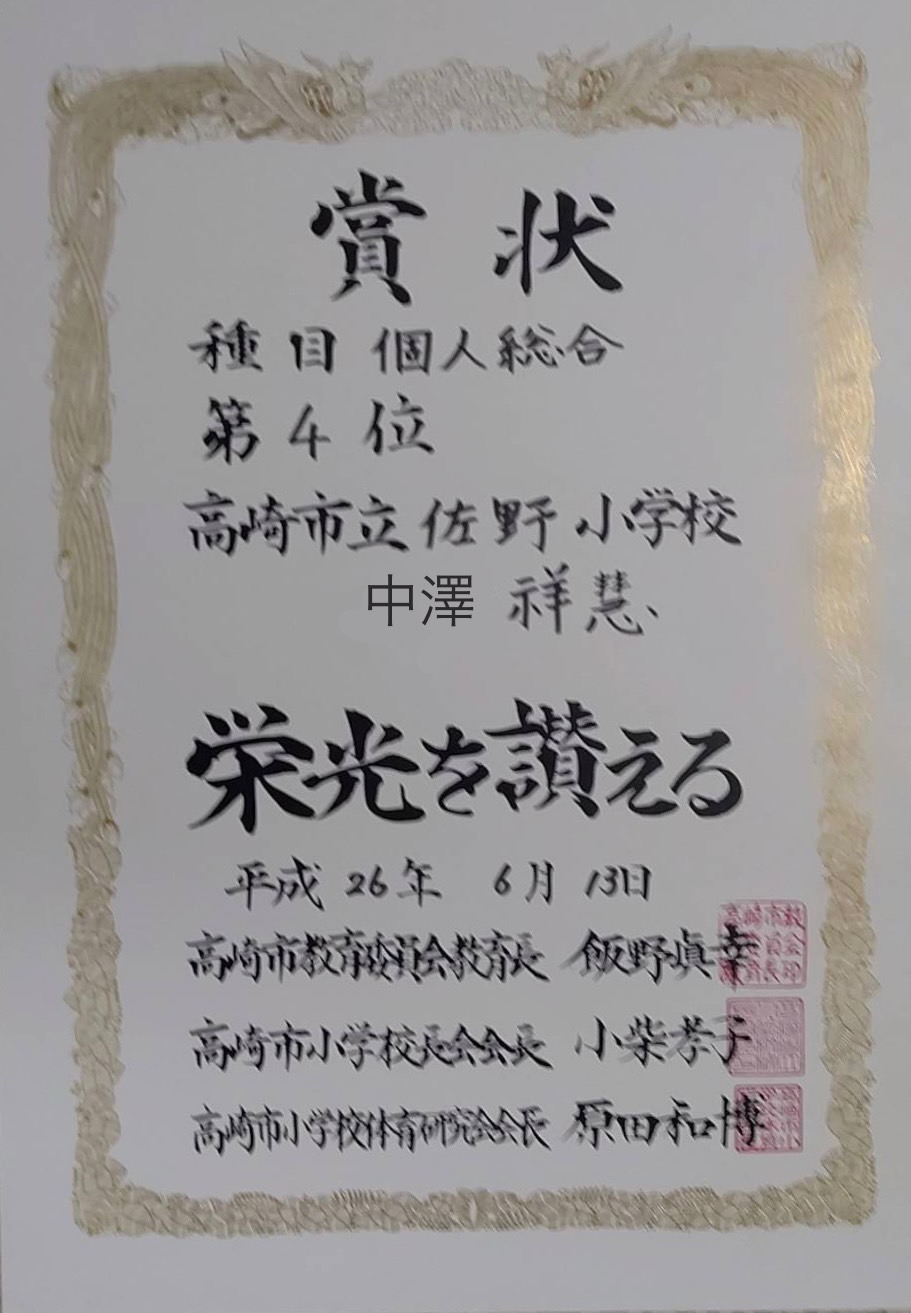 賞状
種目 個人総合
第4位
高崎市立佐野小学校
中澤 祥慧
栄光を讃える
平成26年 6月13日
高崎市教育委員会教育長 飯野眞幸
高崎市小学校長会会長 小柴孝子
高崎市小学校体育研究会会長 原田和博